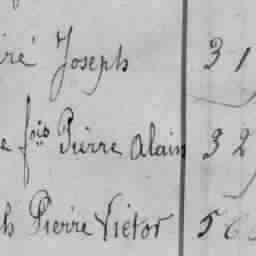 iré Joseph 31
e fois Pierre Alain 32
h Pierre Victor 50